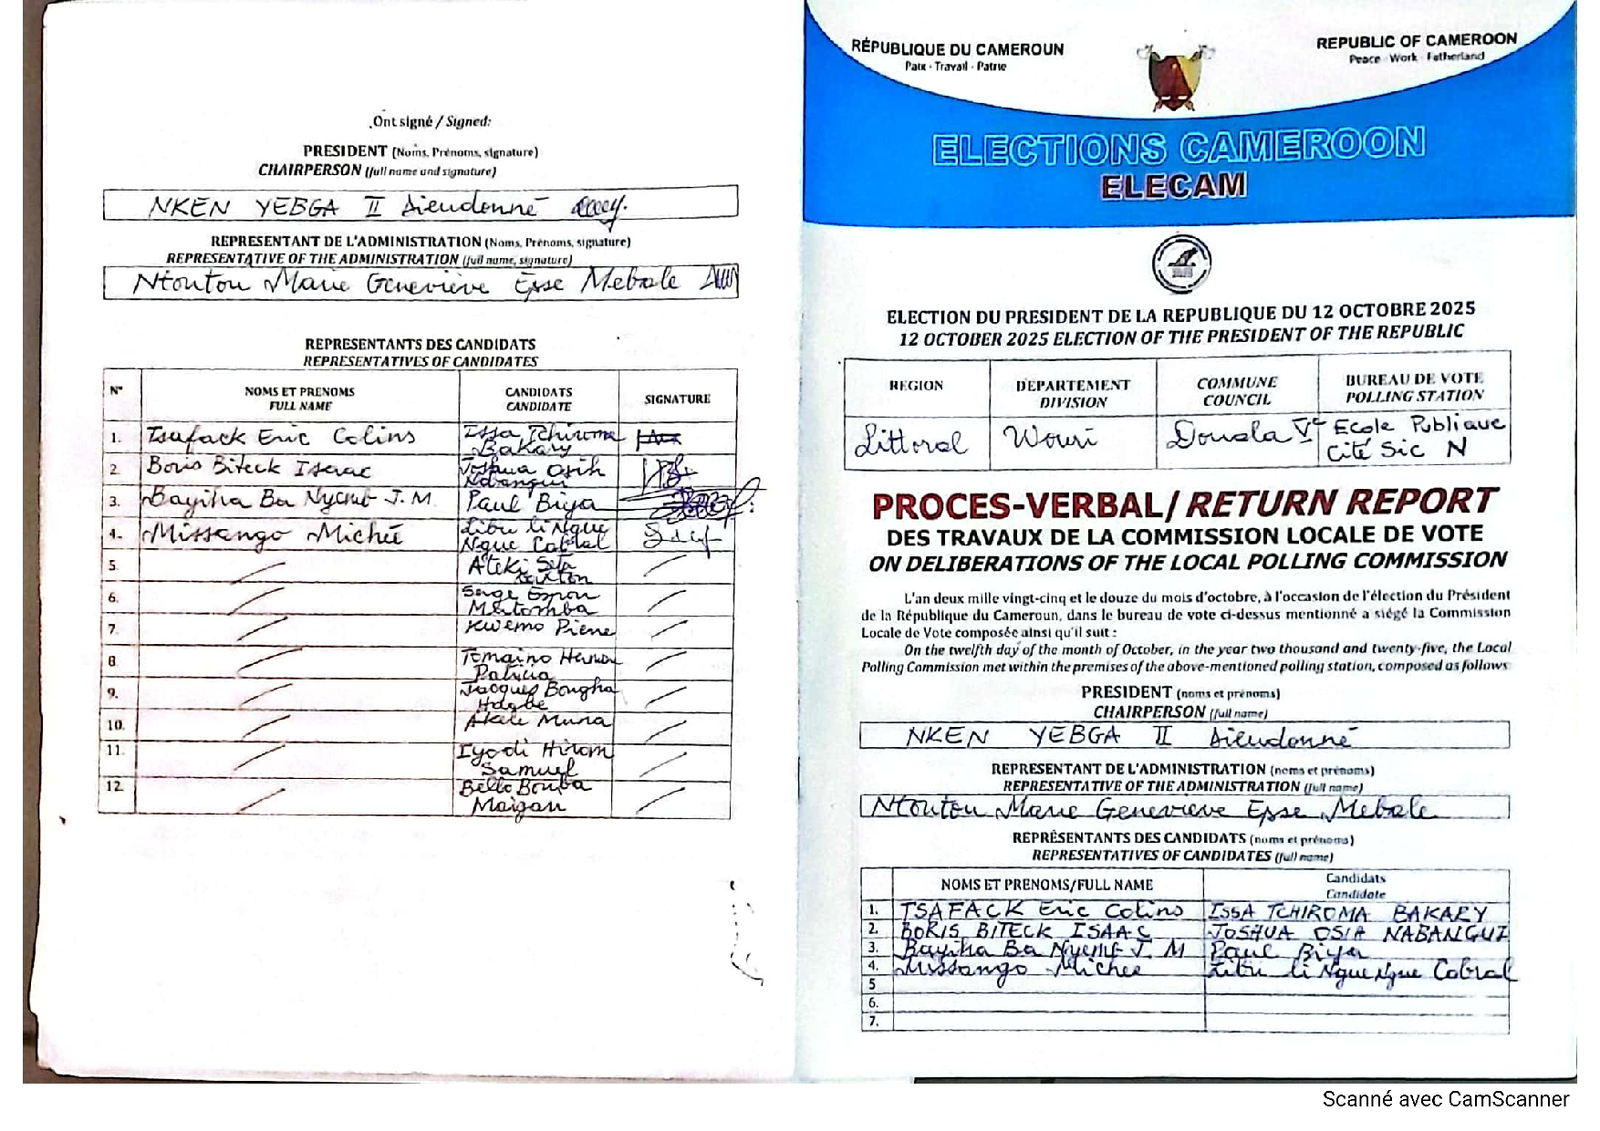 Ont signé / Signed:
PRESIDENT (Noms, Prénoms, signature)
CHAIRPERSON (full name and signature)
NKEN YEBGA II Dieudonné
REPRESENTANT DE L'ADMINISTRATION (Noms, Prénoms, signature)
REPRESENTATIVE OF THE ADMINISTRATION (full name, signature)
Ntoutou Marie Geneviève Epse Mebale
REPRESENTANTS DES CANDIDATS
REPRESENTATIVES OF CANDIDATES
N° NOMS ET PRENOMS FULL NAME CANDIDATS CANDIDATE SIGNATURE
1. Tsafack Eric Colins Issa Tchiroma Bakary
2. Boris Biteck Isaac Joshua Osih Nabangui
3. Bayiha Ba Nyemb J.M. Paul Biya
4. Missango Michée Libii li Ngue Ngue Cabral
5. Ateki Seta
6. Serge Espoir Matomba
7. Kwemo Pierre
8. Tomaino Hermine Patricia
9. Jacques Bougha Hagbe
10. Akere Muna
11. Iyodi Hiram Samuel
12. Bello Bouba Maigari
RÉPUBLIQUE DU CAMEROUN
Paix - Travail - Patrie
REPUBLIC OF CAMEROON
Peace - Work - Fatherland
ELECTIONS CAMEROON
ELECAM
ELECTION DU PRESIDENT DE LA REPUBLIQUE DU 12 OCTOBRE 2025
12 OCTOBER 2025 ELECTION OF THE PRESIDENT OF THE REPUBLIC
REGION DEPARTEMENT DIVISION COMMUNE COUNCIL BUREAU DE VOTE POLLING STATION
Littoral Wouri Douala Ve Ecole Publique Cité Sic N
PROCES-VERBAL/ RETURN REPORT
DES TRAVAUX DE LA COMMISSION LOCALE DE VOTE
ON DELIBERATIONS OF THE LOCAL POLLING COMMISSION
L'an deux mille vingt-cinq et le douze du mois d'octobre, à l'occasion de l'élection du Président
de la République du Cameroun, dans le bureau de vote ci-dessus mentionné a siégé la Commission
Locale de Vote composée ainsi qu'il suit :
On the twelfth day of the month of October, in the year two thousand and twenty-five, the Local
Polling Commission met within the premises of the above-mentioned polling station, composed as follows
PRESIDENT (noms et prénoms)
CHAIRPERSON (full name)
NKEN YEBGA II Dieudonné
REPRESENTANT DE L'ADMINISTRATION (noms et prénoms)
REPRESENTATIVE OF THE ADMINISTRATION (full name)
Ntoutou Marie Geneviève Epse Mebale
REPRÉSENTANTS DES CANDIDATS (noms et prénoms)
REPRESENTATIVES OF CANDIDATES (full name)
NOMS ET PRENOMS/FULL NAME Candidats Candidate
1. TSAFACK Eric Colins ISSA TCHIROMA BAKARY
2. BORIS BITECK ISAAC JOSHUA OSIH NABANGUI
3. Bayiha Ba Nyemb J. M Paul Biya
4. Missango Michée Libii li Ngue Ngue Cabral
5
6.
7.
Scanné avec CamScanner